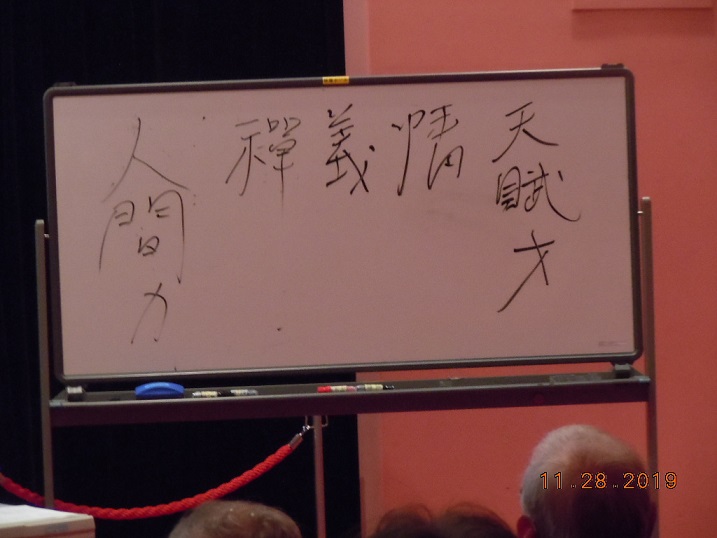 天賦才
情
義
禪
人間力
11.28.2019